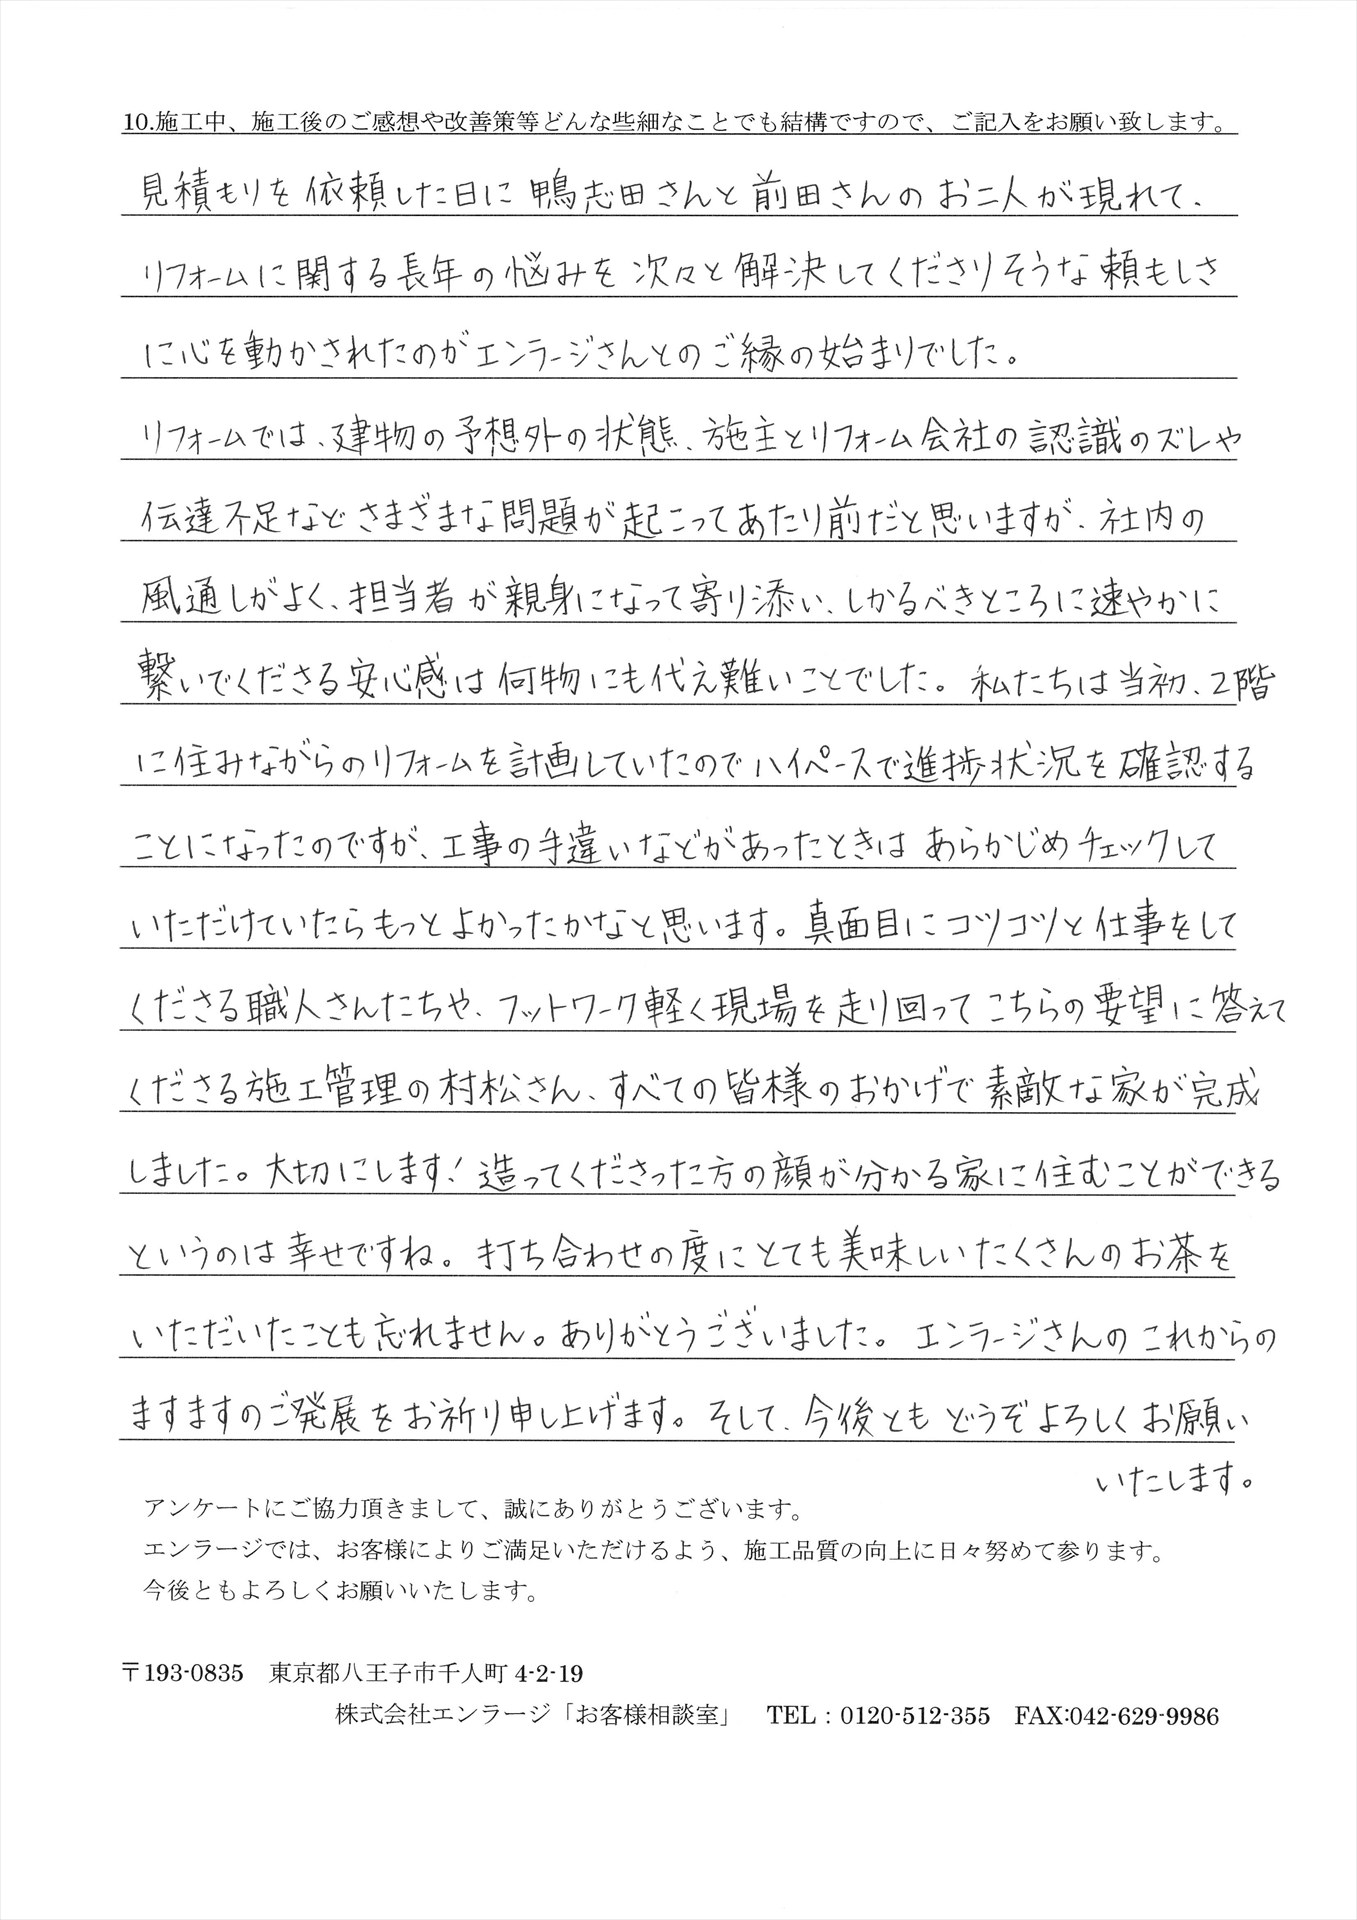 10.施工中、施工後のご感想や改善策等どんな些細なことでも結構ですので、ご記入をお願い致します。
見積もりを依頼した日に鴨志田さんと前田さんのお二人が現れて、
リフォームに関する長年の悩みを次々と解決してくださりそうな頼もしさ
に心を動かされたのがエンラージさんとのご縁の始まりでした。
リフォームでは、建物の予想外の状態、施主とリフォーム会社の認識のズレや
伝達不足などさまざまな問題が起こってあたり前だと思いますが、社内の
風通しがよく、担当者が親身になって寄り添い、しかるべきところに速やかに
繋いでくださる安心感は何物にも代え難いことでした。私たちは当初、2階
に住みながらのリフォームを計画していたのでハイペースで進捗状況を確認する
ことになったのですが、工事の手違いなどがあったときはあらかじめチェックして
いただけていたらもっとよかったかなと思います。真面目にコツコツと仕事をして
くださる職人さんたちや、フットワーク軽く現場を走り回ってこちらの要望に答えて
くださる施工管理の村松さん、すべての皆様のおかげで素敵な家が完成
しました。大切にします!造ってくださった方の顔が分かる家に住むことができる
というのは幸せですね。打ち合わせの度にとても美味しいたくさんのお茶を
いただいたことも忘れません。ありがとうございました。エンラージさんのこれからの
ますますのご発展をお祈り申し上げます。そして、今後ともどうぞよろしくお願い
いたします。
アンケートにご協力頂きまして、誠にありがとうございます。
エンラージでは、お客様によりご満足いただけるよう、施工品質の向上に日々努めて参ります。
今後ともよろしくお願いいたします。
〒193-0835　東京都八王子市千人町 4-2-19
株式会社エンラージ「お客様相談室」　TEL：0120-512-355　FAX:042-629-9986